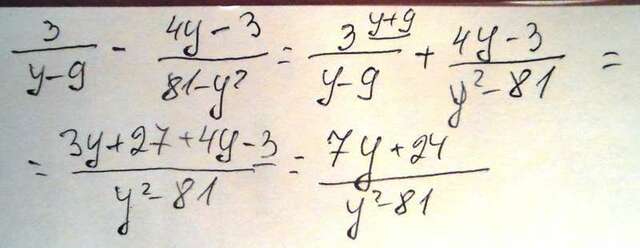 3/(y-9) - (4y-3)/(81-y²) = 3^(y+9)/(y-9) + (4y-3)/(y²-81) =
= (3y+27+4y-3)/(y²-81) = (7y+24)/(y²-81)